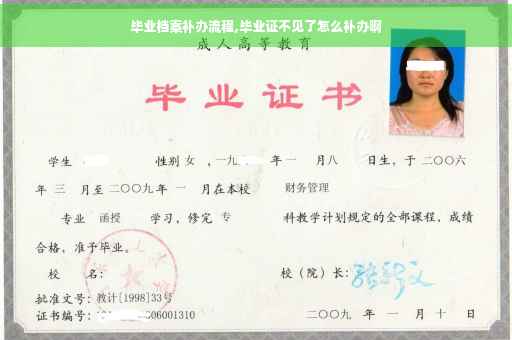 毕业档案补办流程,毕业证不见了怎么补办啊
成人高等教育
毕业证书
学生 性别 女 ,一九 年 一 月八 日生,于二〇〇六
年 三 月至二〇〇九年 一 月在本校 财务管理
专业 函授 学习,修完 专 科教学计划规定的全部课程,成绩
合格,准予毕业。
校 名: 校(院)长:
批准文号:教计[1998]33号
证书编号: 006001310 二〇〇九 年 一 月 十 日